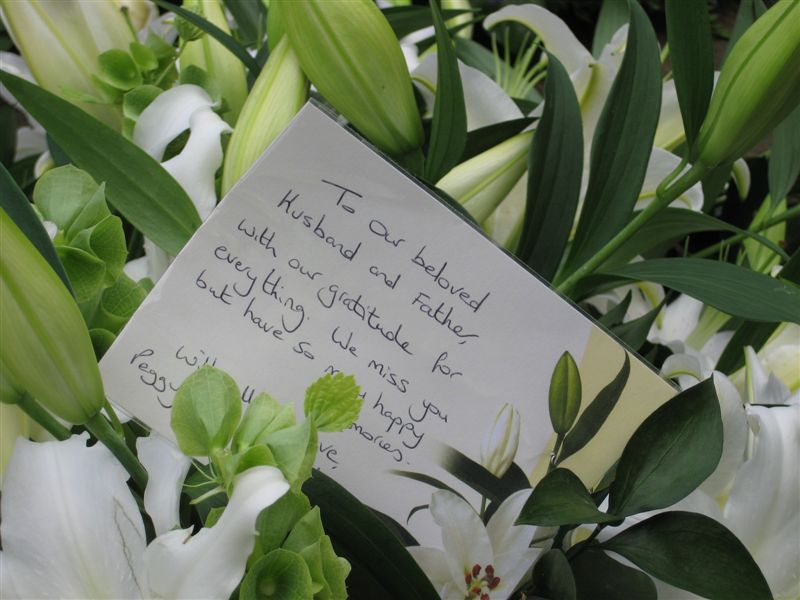 To Our beloved
Husband and Father,
with our gratitude for
everything. We miss you
but have so happy
memories.
Peggy